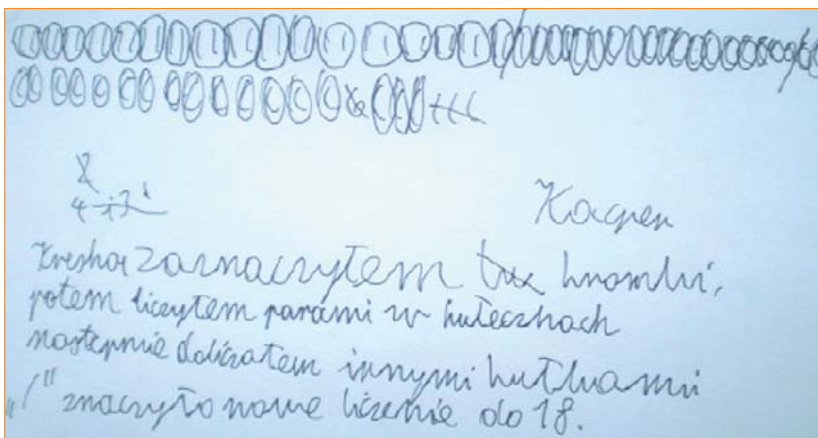 &
4 i 3
Kacper
Kreską zaznaczyłem kromki,
potem liczyłem parami w kułeczkach
następnie doliczałem innymi kułkami
„/" znaczyło nowe liczenie do 18.